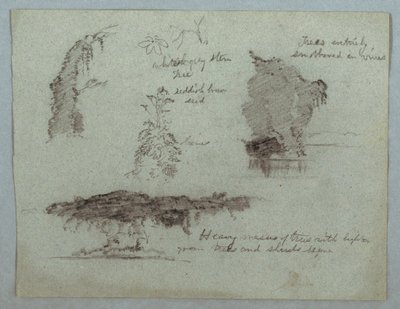 whitish grey stem
Tree
reddish brown
seed
Trees entirely
smothered in vines
Heavy masses of trees with lighter
green trees and shrubs